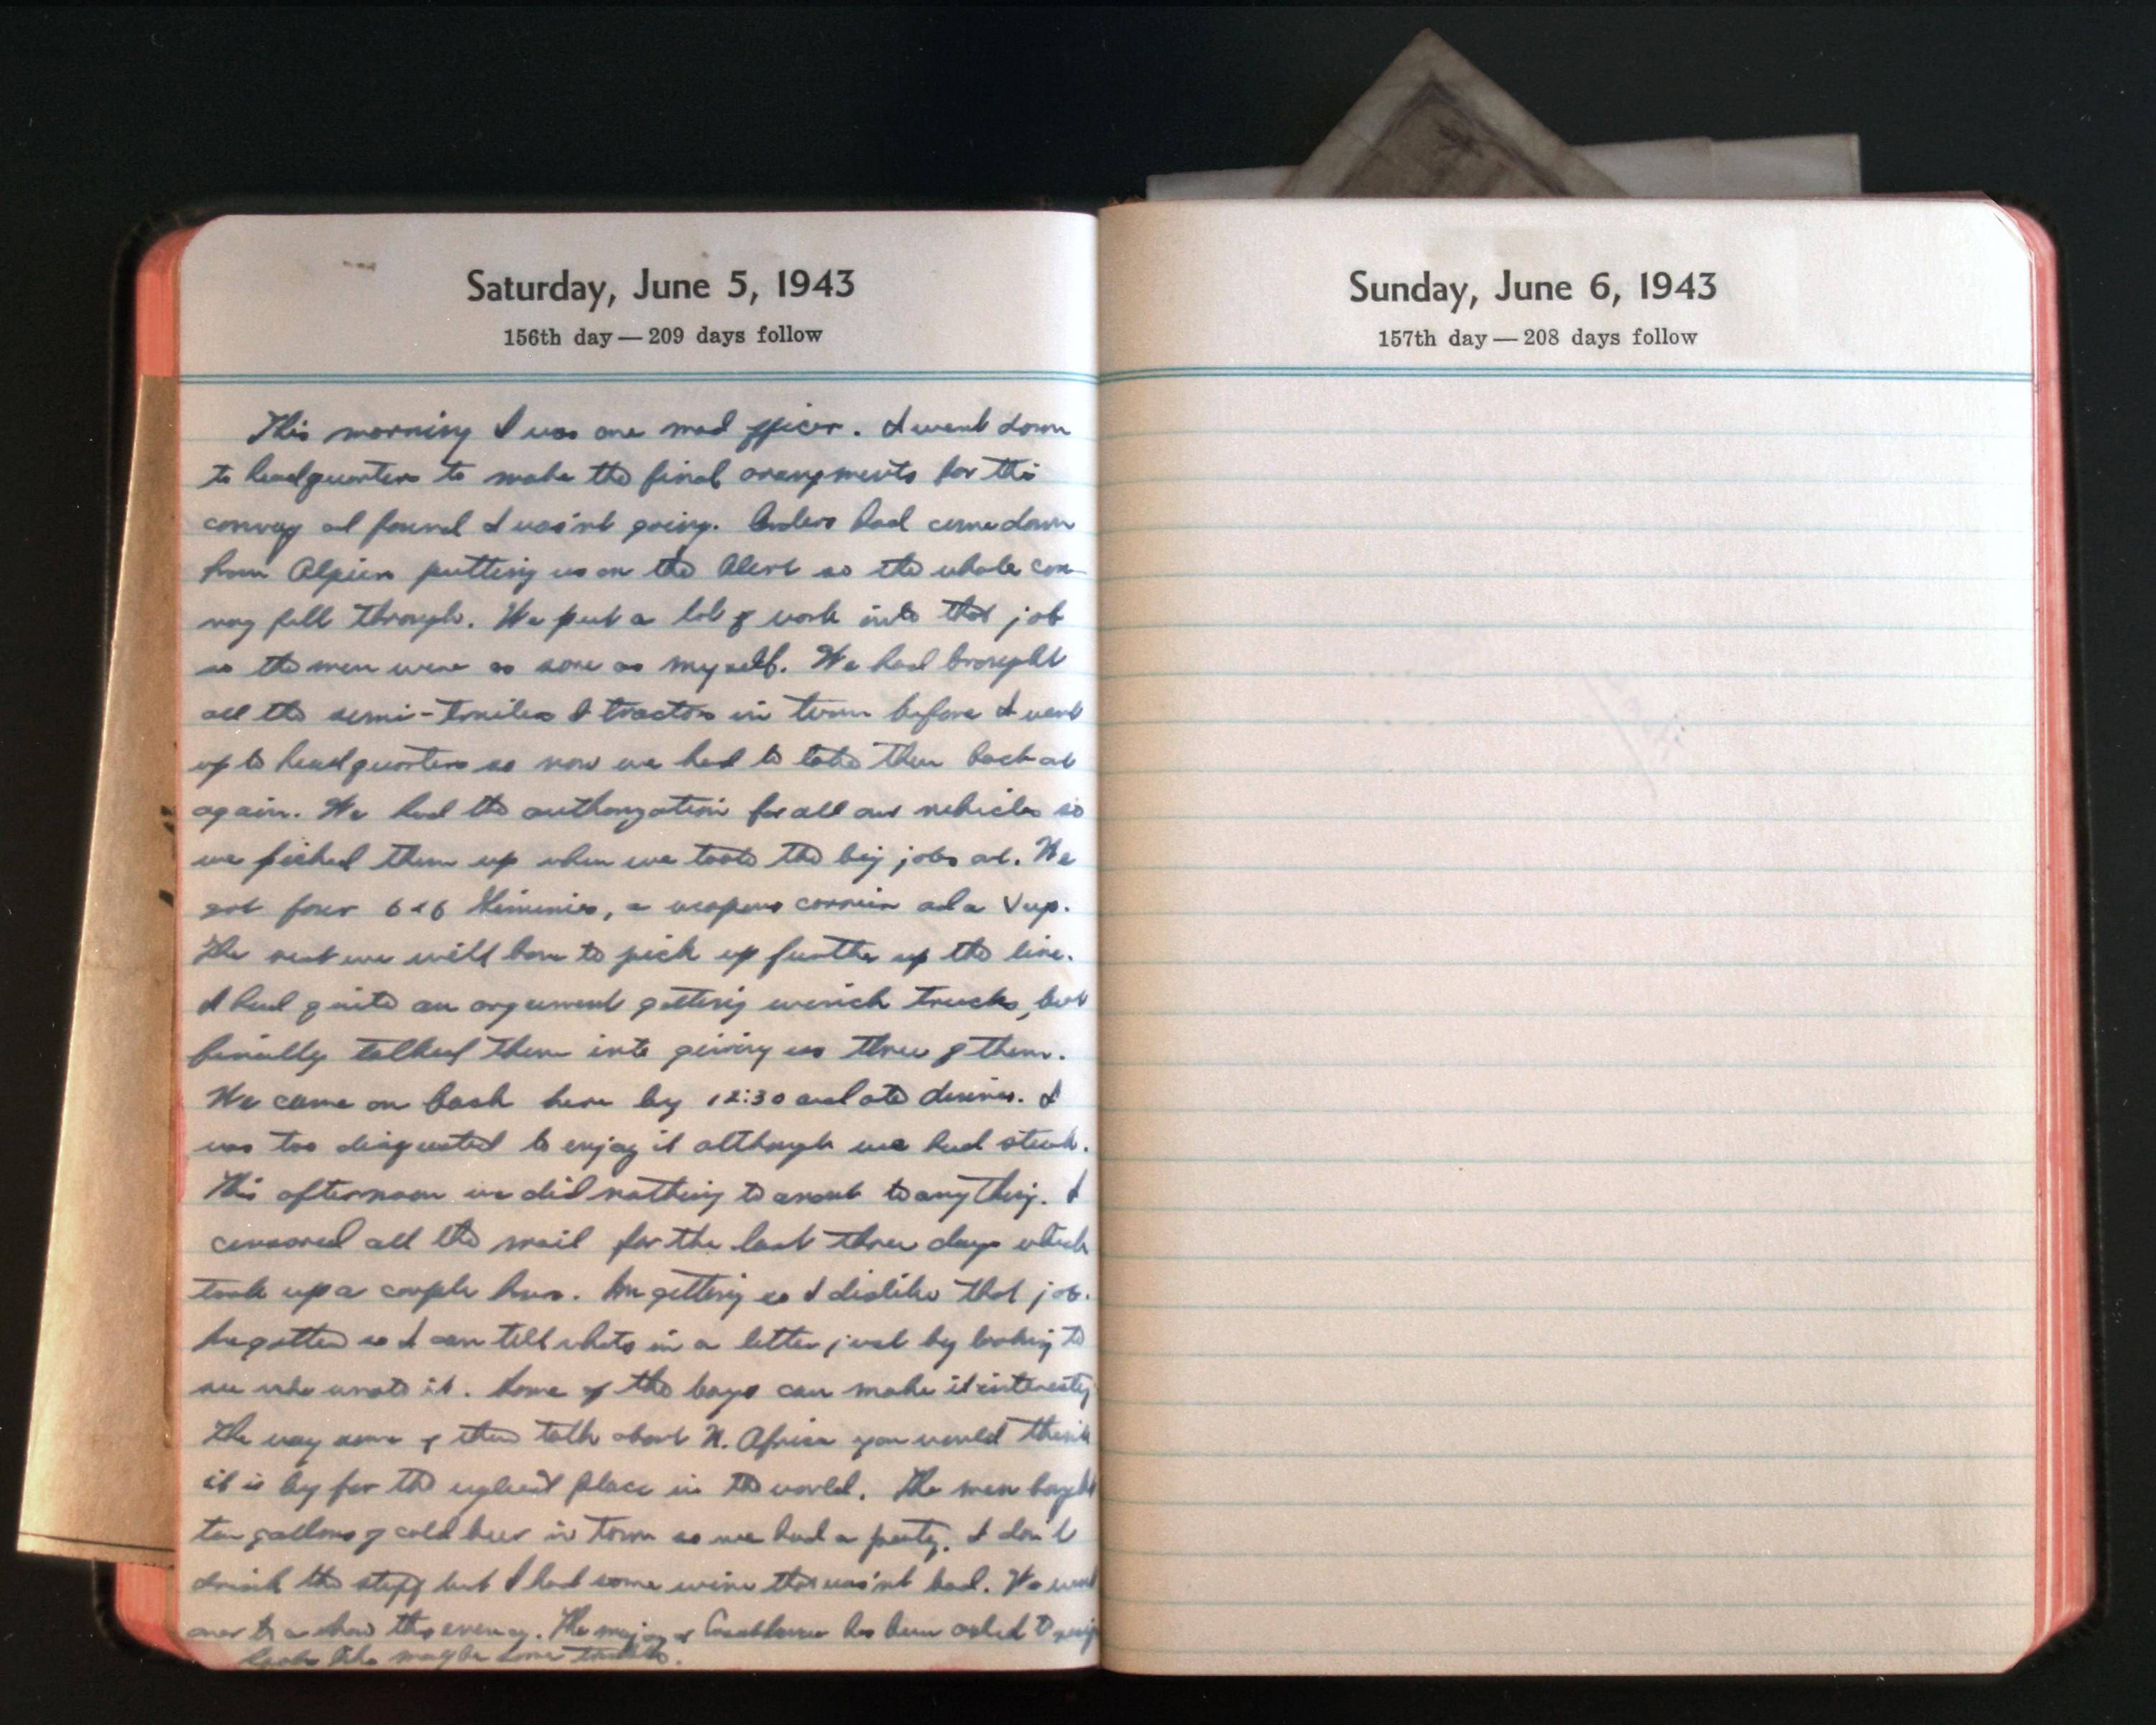 Saturday, June 5, 1943
156th day — 209 days follow
This morning I was one mad officer. I went down
to headquarters to make the final arangments for the
convoy and found I was'nt going. Orders had come down
from putting us on the Alert so the whole con-
voy fell through. We put a lot of work into that job
so the men were as sore as myself. We had brought
all the semi-trailers & tractors in town before I went
up to headquarters so now we had to take them back out
again. We had the authorization for all our vehicles so
we picked them up when we took the big jobs out. We
got four 6x6 Jimmies, a weapons carrier and a
The rest we will have to pick up further up the line.
I had quite an argument getting winch trucks, but
finally talked them into giving us three of them.
We came on back here by 12:30 and ate dinner. I
was too disgusted to enjoy it although we had steak.
This afternoon we did nothing to amount to anything. I
censored all the mail for the last three days which
took up a couple hours. Im getting so I dislike that job.
Ive gotten so I can tell whats in a letter just by looking to
see who wrote it. Some of the boys can make it interesting
The way some of them talk about N. Africa you would think
it is by far the ugliest place in the world. The men bought
ten gallons of cold beer in town so we had a party. I don't
drink the stuff but I had some wine that was'nt bad. We went
over to a show this evening. The mayor of Casablanca has been asked to resign
looks like maybe some trouble.
Sunday, June 6, 1943
157th day — 208 days follow